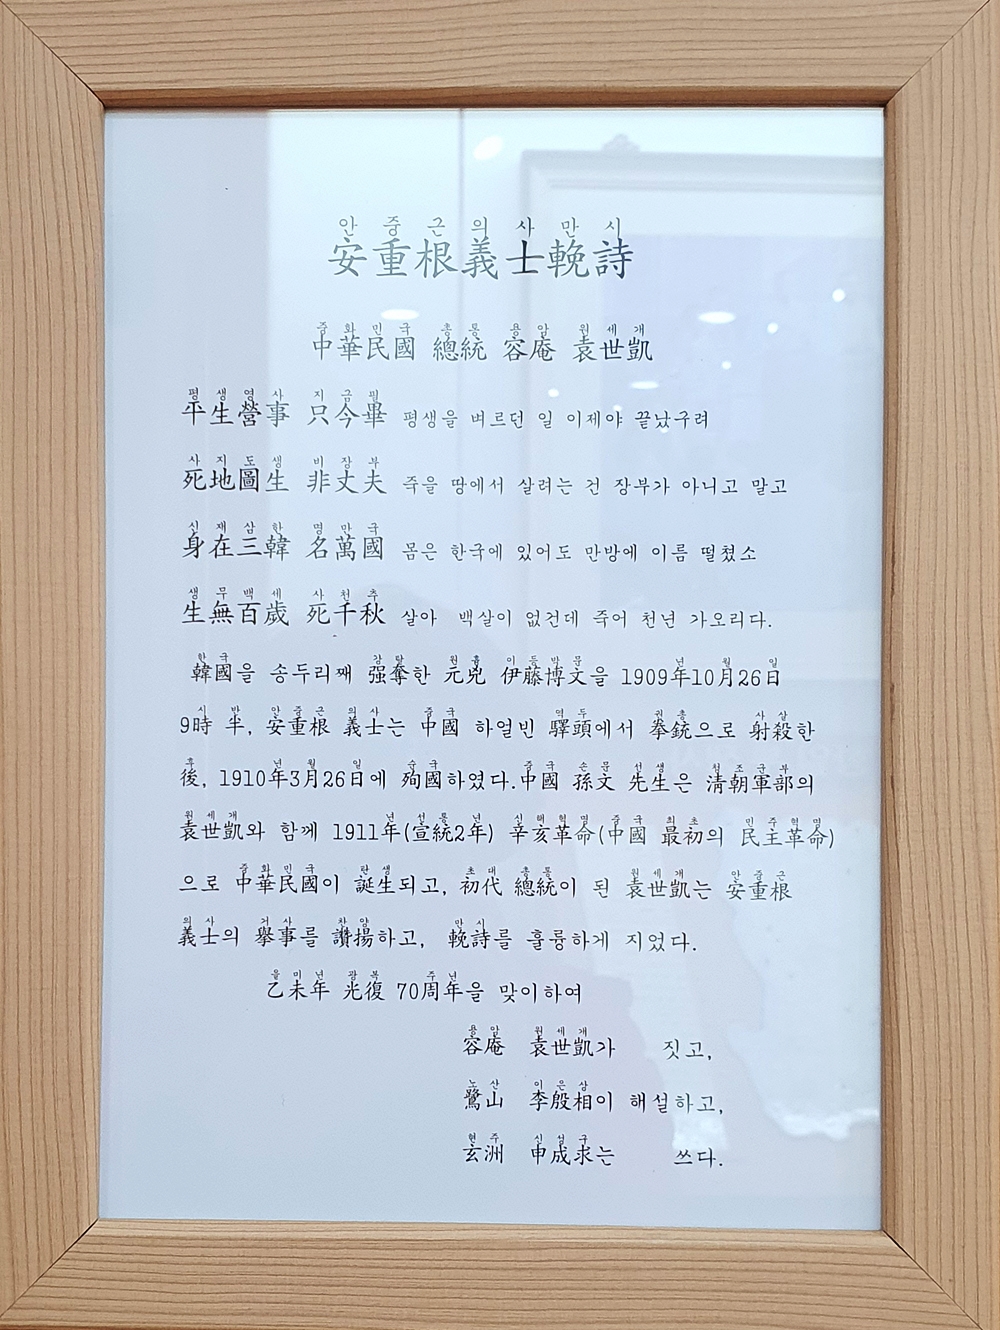 안중근의사만시
安重根義士輓詩
중화민국 총통 용암 원세개
中華民國 總統 容庵 袁世凱
평생영사 지금필
平生營事 只今畢 평생을 벼르던 일 이제야 끝났구려
사지도생 비장부
死地圖生 非丈夫 죽을 땅에서 살려는 건 장부가 아니고 말고
신재삼한 명만국
身在三韓 名萬國 몸은 한국에 있어도 만방에 이름 떨쳤소
생무백세 사천추
生無百歲 死千秋 살아 백살이 없건데 죽어 천년 가오리다.
한국 강탈 원흉 이등박문 년 월 일
韓國을 송두리째 强奪한 元兇 伊藤博文을 1909年10月26日
시 반 안중근 의사 중국 역두 권총 사살
9時 半, 安重根 義士는 中國 하얼빈 驛頭에서 拳銃으로 射殺한
후 년 월 일 순국 중국 손문 선생 청조군부
後, 1910年3月26日에 殉國하였다.中國 孫文 先生은 淸朝軍部의
원세개 년 선통 년 신해혁명 중국 최초 민주혁명
袁世凱와 함께 1911年(宣統2年) 辛亥革命(中國 最初의 民主革命)
중화민국 탄생 초대 총통 원세개 안중근
으로 中華民國이 誕生되고, 初代 總統이 된 袁世凱는 安重根
의사 거사 찬양 만시
義士의 擧事를 讚揚하고, 輓詩를 훌륭하게 지었다.
을미년 광복 주년
乙未年 光復 70周年을 맞이하여
용암 원세개
容庵 袁世凱가 짓고,
노산 이은상
鷺山 李殷相이 해설하고,
현주 신성구
玄洲 申成求는 쓰다.